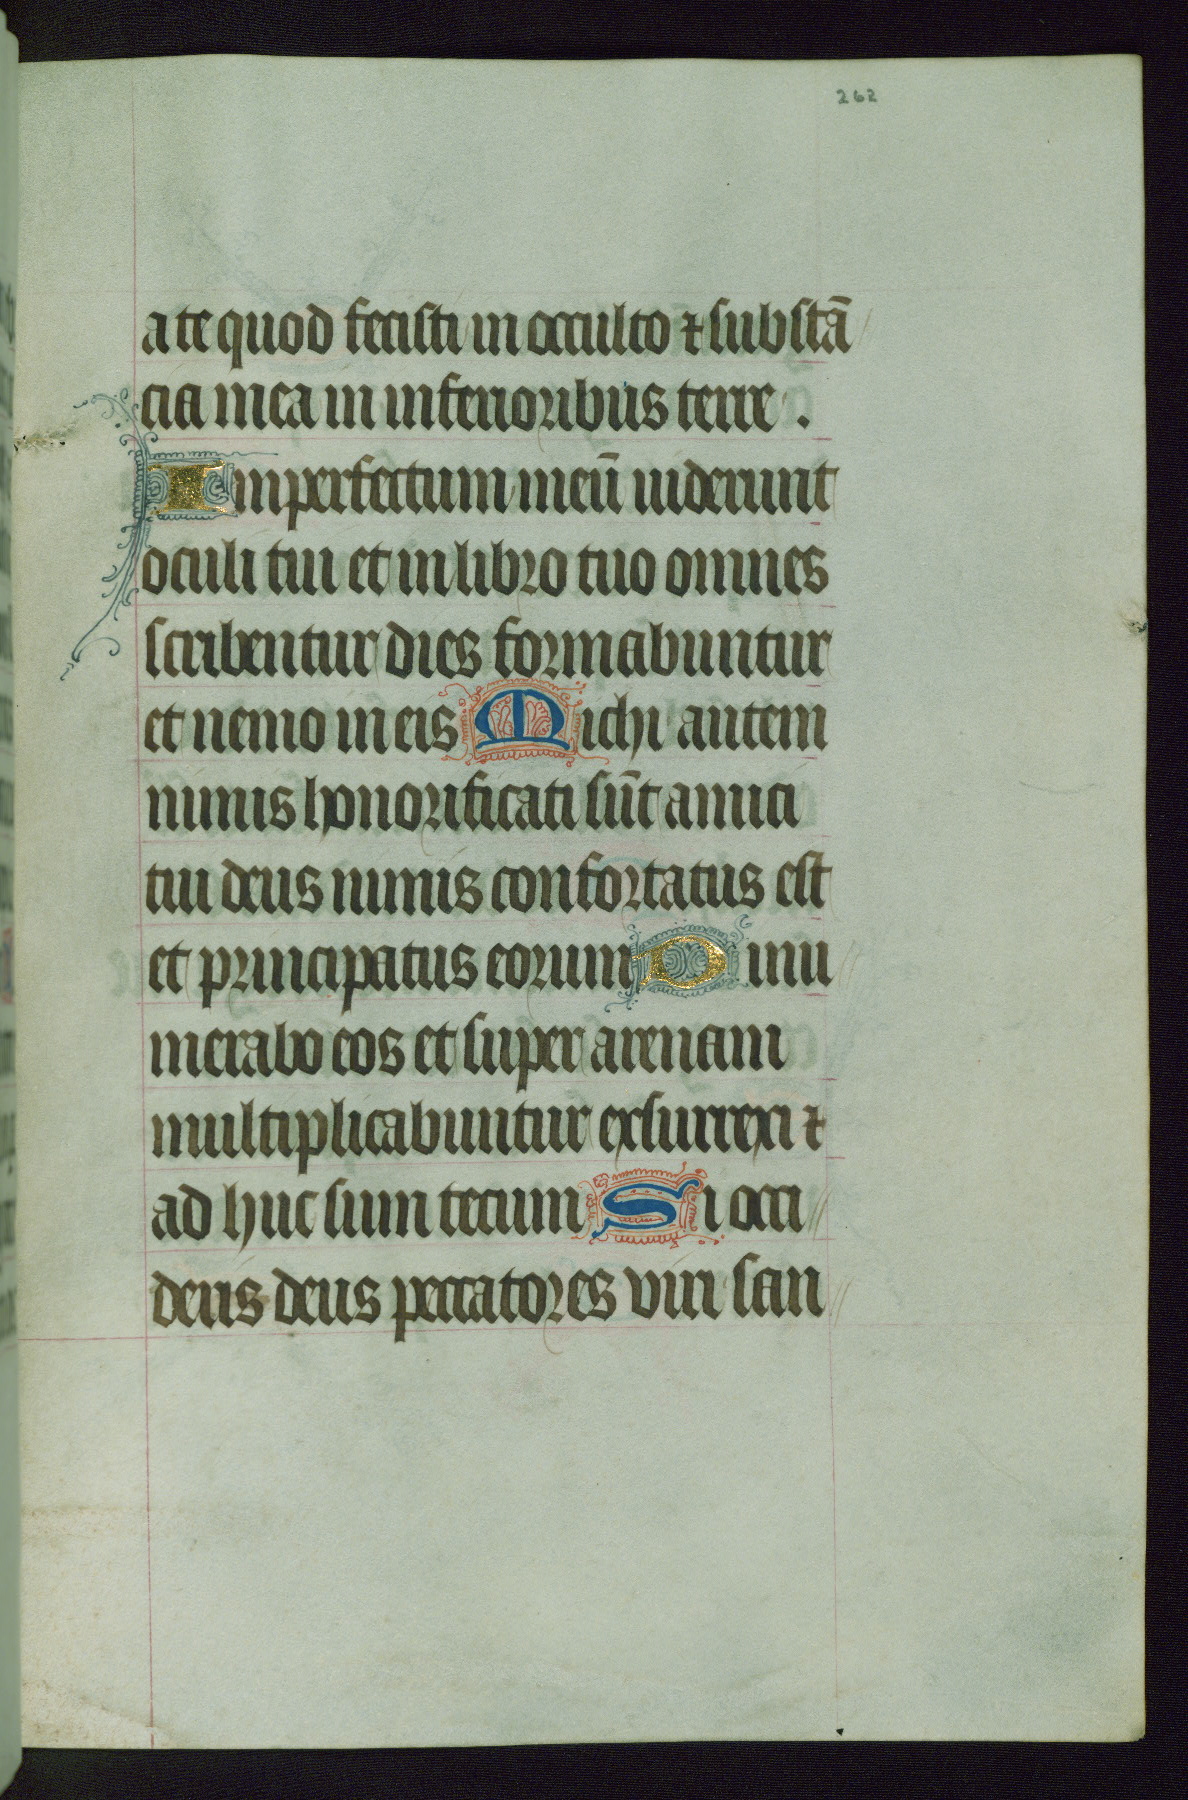 262
a te quod fecisti in occulto ⁊ substā
cia mea in inferioribus terre .
Imperfectum meū uiderunt
oculi tui et in libro tuo omnes
scribentur dies formabuntur
et nemo in eis Michi autem
nimis honorificati sūt amici
tui deus nimis confortatus est
et principatus eorum Dinu
merabo eos et super arenam
multiplicabuntur exsurrexi ⁊
ad huc sum tecum Si occi
deris deus peccatores viri san